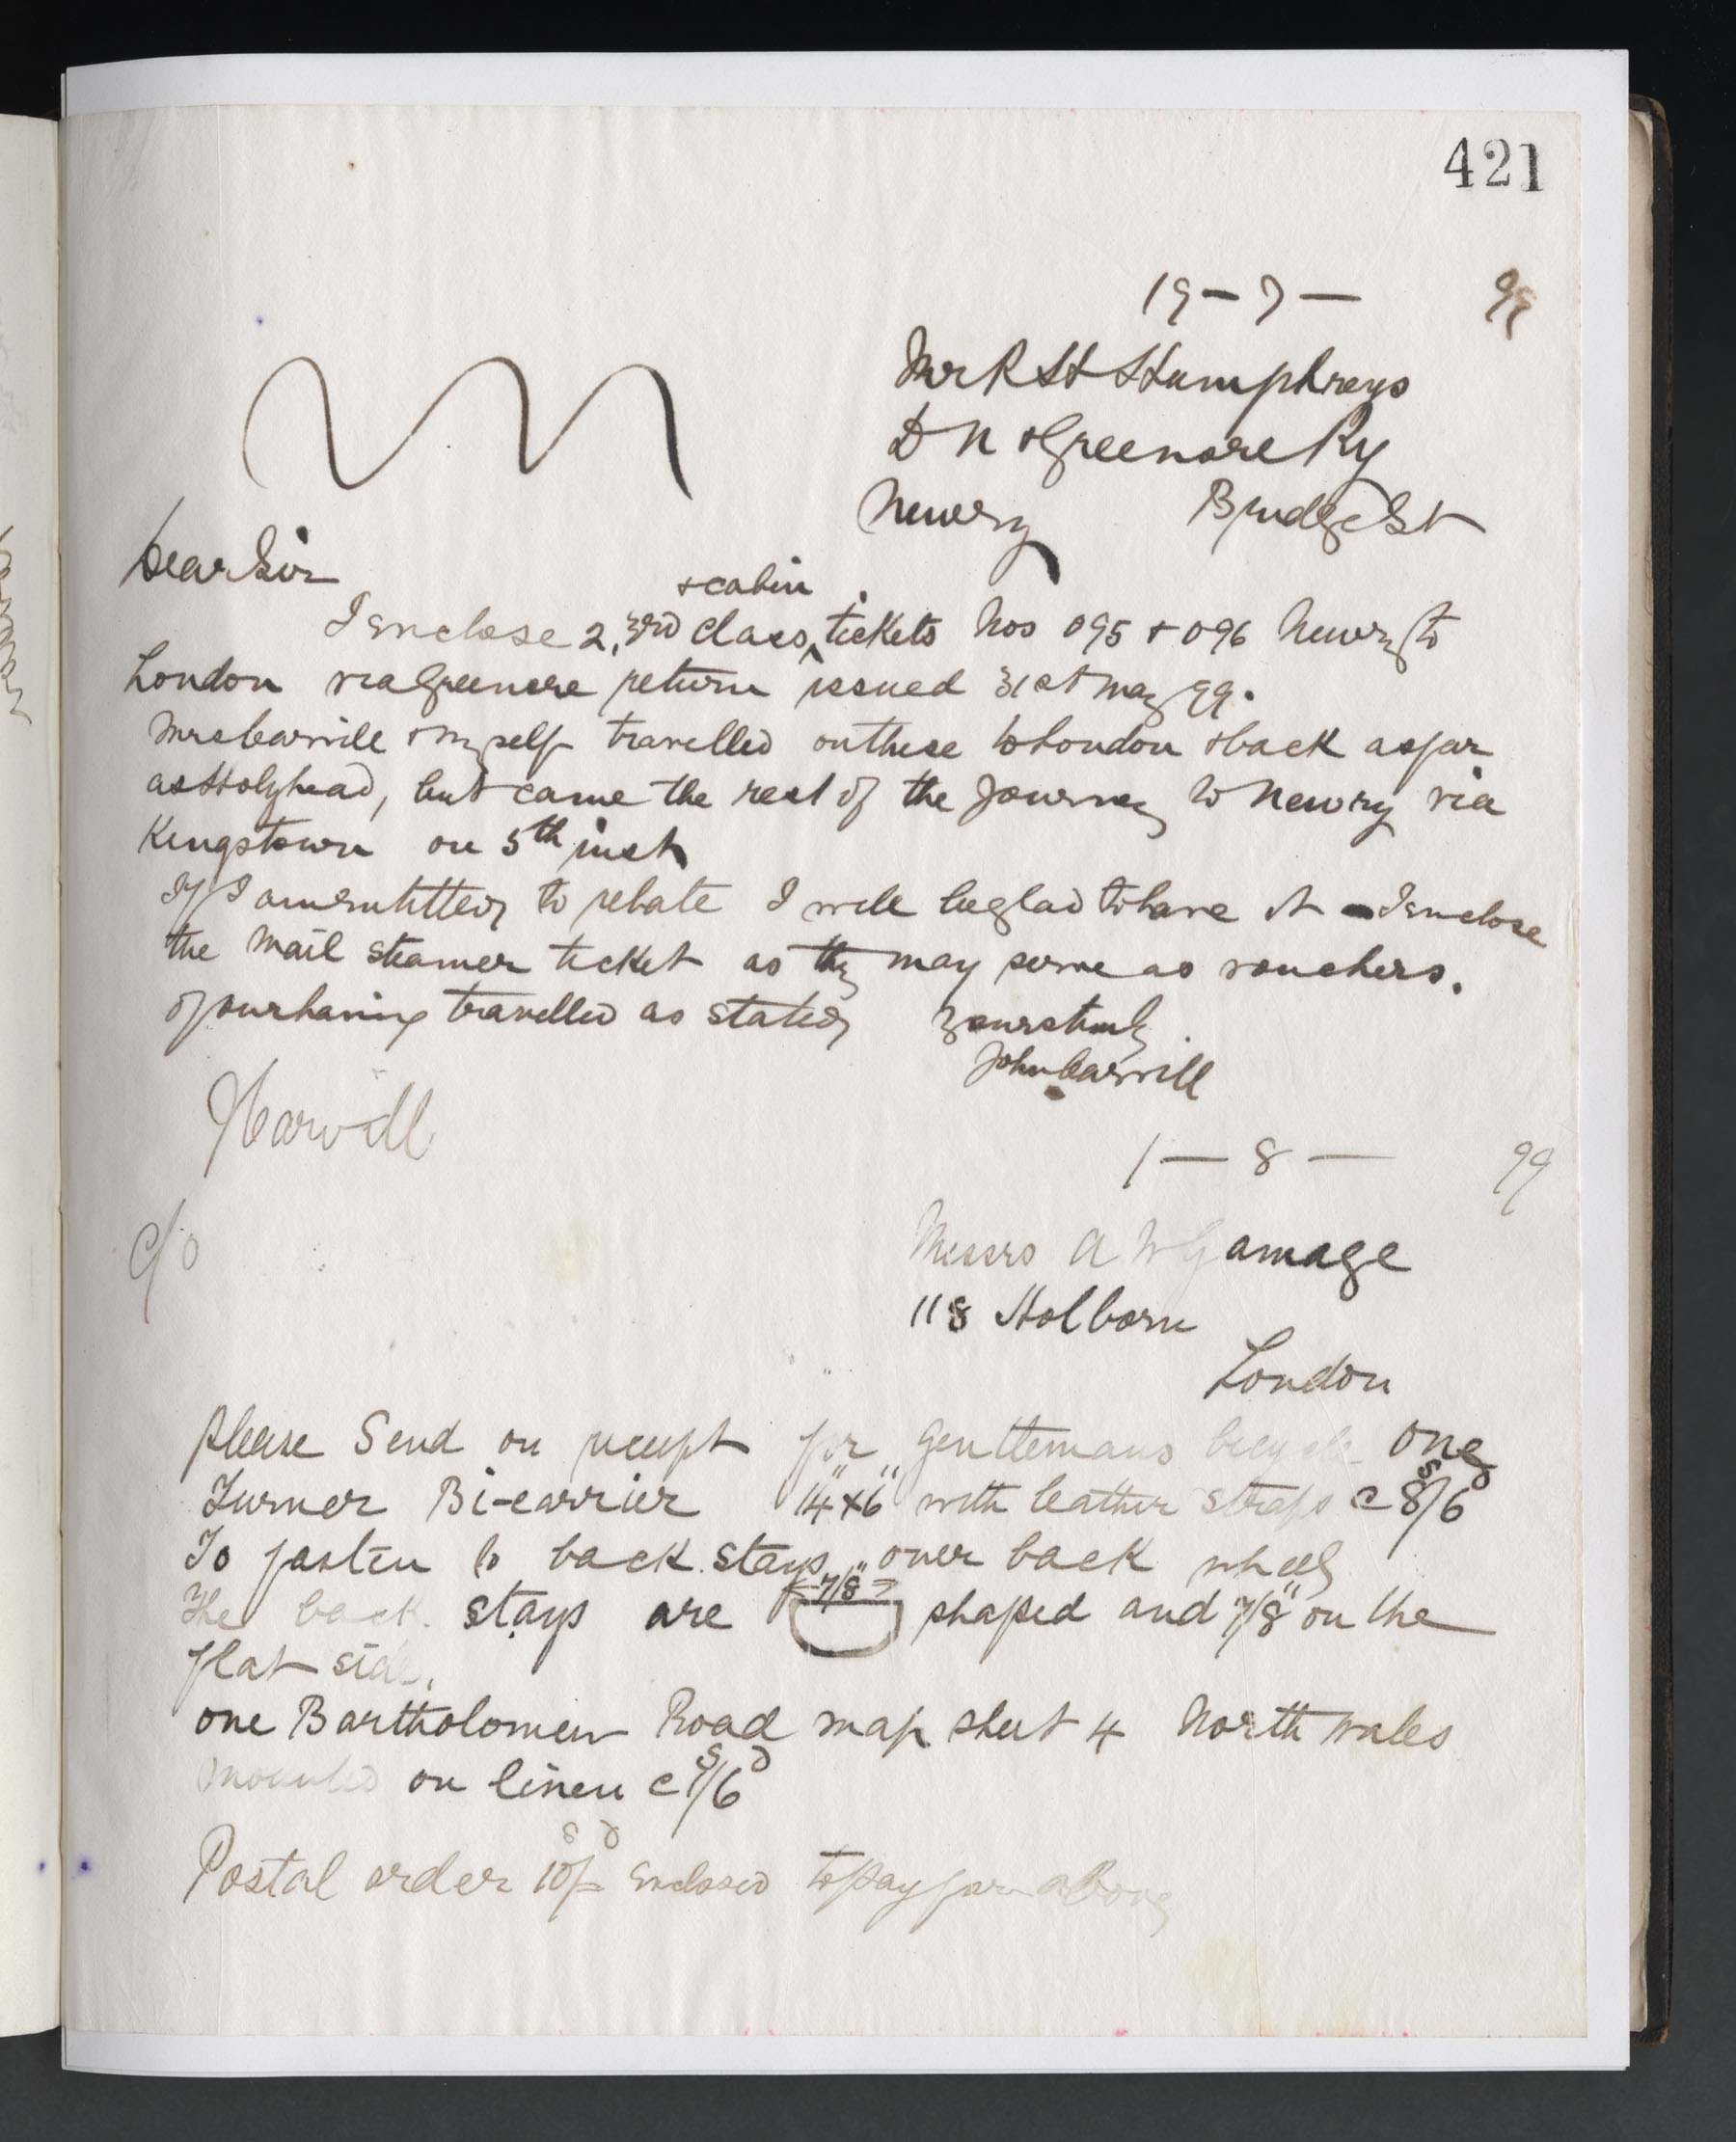 421
19-7- 99
Mr R H Humphreys
D N & Greenore Ry
Newry Bridge St
Dear Sir
& cabin
I enclose 2, 3rd class tickets Nos 095 & 096 Newry to
London via Greenore return issued 31st May 99.
Mrs Carvill & myself travelled on these to London & back as far
as Holyhead, but came the rest of the journey to Newry via
Kingstown on 5th inst
If I am entitled to rebate I will be glad to have it - I enclose
the mail steamer ticket as they may serve as vouchers.
of our having travelled as stated yours truly
John Carvill
JCarvill
1-8- 99
c/o
Messrs A W Gamage
118 Holborn
London
please Send on receipt for gentlemans bicycle one
Turner Bi-carrier 14" x 6" with leather straps @ 8s/6d
To fasten to back stays over back wheel
7/8"
The back stays are shaped and 7/8" on the
flat side.
one Bartholomew Road map sheet 4 North Wales
mounted on linen @ 1s/6d
Postal order 10s/-d Enclosed to pay for above